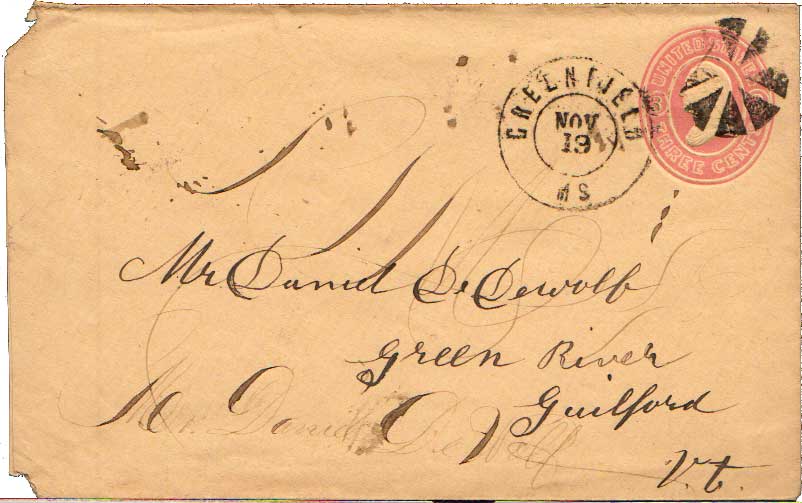 UNITED STATES
THREE CENTS
GREENFIELD
NOV
19
MS
Mr Daniel De Dewolf
Green River
Guilford
Vt.
Mr. Daniel De Wolf